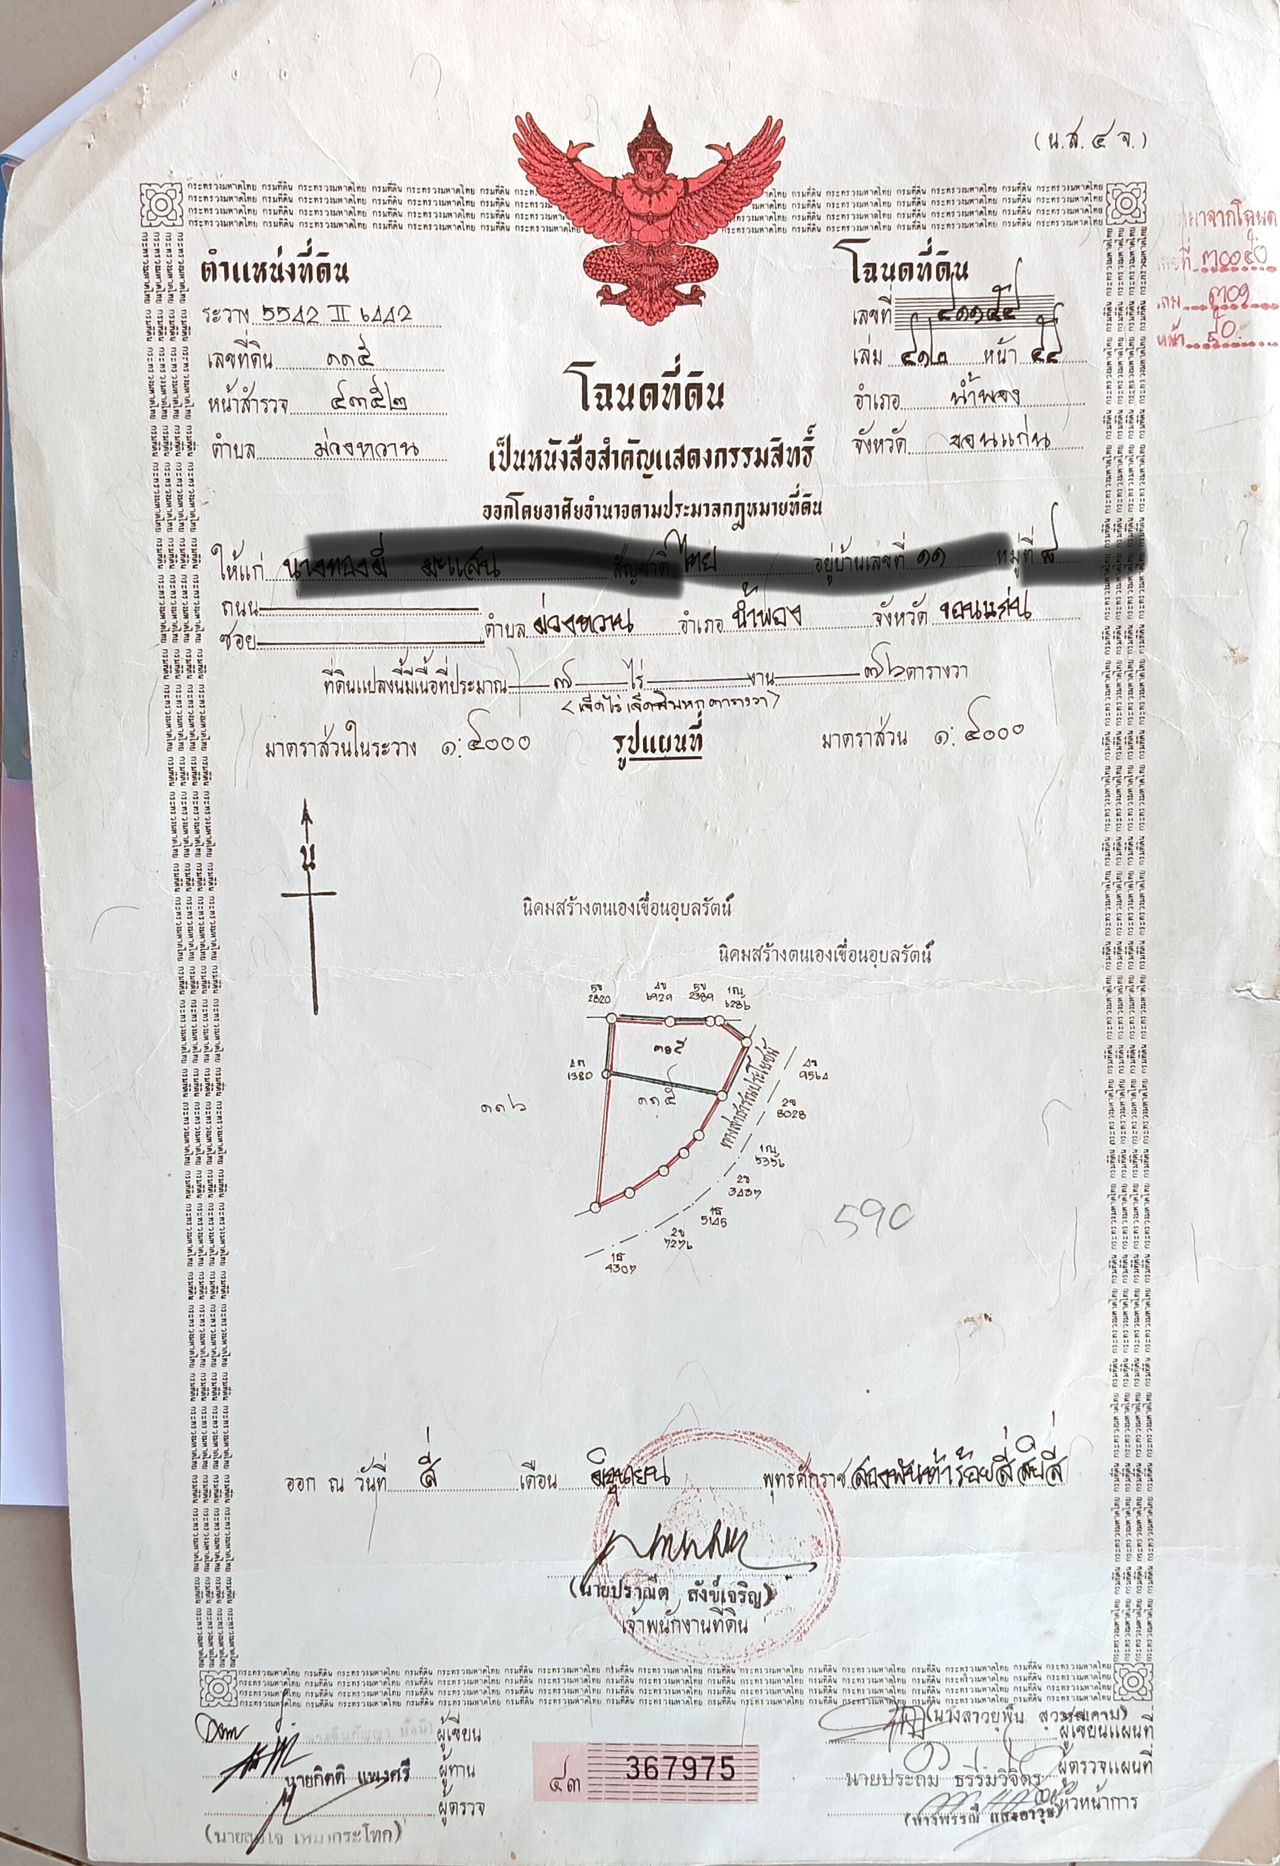 (น.ส.๔ จ.)
ตำแหน่งที่ดิน
ระวาง 5542 II ๖442
เลขที่ดิน ๑๑๕
หน้าสำรวจ ๔๓๕๒
ตำบล ม่วงหวาน
โฉนดที่ดิน
เลขที่ ๔๑๑๕๕
เล่ม ๔๑๒ หน้า ๕๕
อำเภอ น้ำพอง
จังหวัด ขอนแก่น
มาจากโฉนด
ที่ ๓๐๐๕๐
๓๐๑
หน้า ๕๐
โฉนดที่ดิน
เป็นหนังสือสำคัญแสดงกรรมสิทธิ์
ออกโดยอาศัยอำนาจตามประมวลกฎหมายที่ดิน
ให้แก่ สัญชาติ ไทย อยู่บ้านเลขที่ ๑๑ หมู่ที่
ถนน
ซอย ตำบล ม่วงหวาน อำเภอ น้ำพอง จังหวัด ขอนแก่น
ที่ดินแปลงนี้มีเนื้อที่ประมาณ ๗ ไร่ งาน ๗๖ ตารางวา
(เจ็ดไร่เจ็ดสิบหกตารางวา)
มาตราส่วนในระวาง ๑:๔๐๐๐ รูปแผนที่ มาตราส่วน ๑:๔๐๐๐
น
นิคมสร้างตนเองเขื่อนอุบลรัตน์
นิคมสร้างตนเองเขื่อนอุบลรัตน์
5ข 2820
4ข ๖929
5ข 2389
1ณ ๖28๖
๓๑๕
4ต 1380
๑๑๕
๑๑๖
ทางสาธารณประโยชน์
4ข 95๖4
2ข 8028
1ณ 535๖
2ข 3437
1ธ 5145
2ข 727๖
1ธ 4307
590
ออก ณ วันที่ สี่ เดือน มิถุนายน พุทธศักราช สองพันห้าร้อยสี่สิบสี่
(นายปราณีต สังข์เจริญ)
เจ้าพนักงานที่ดิน
ผู้เขียน
นายกิตติ แพงศรี ผู้ทาน
ผู้ตรวจ
๔๓ 367975
ผู้เขียนแผนที่
นายประถม ธรรมวิจิตร ผู้ตรวจแผนที่
หัวหน้าการ
(นางพรรณี แสงอาวุธ)